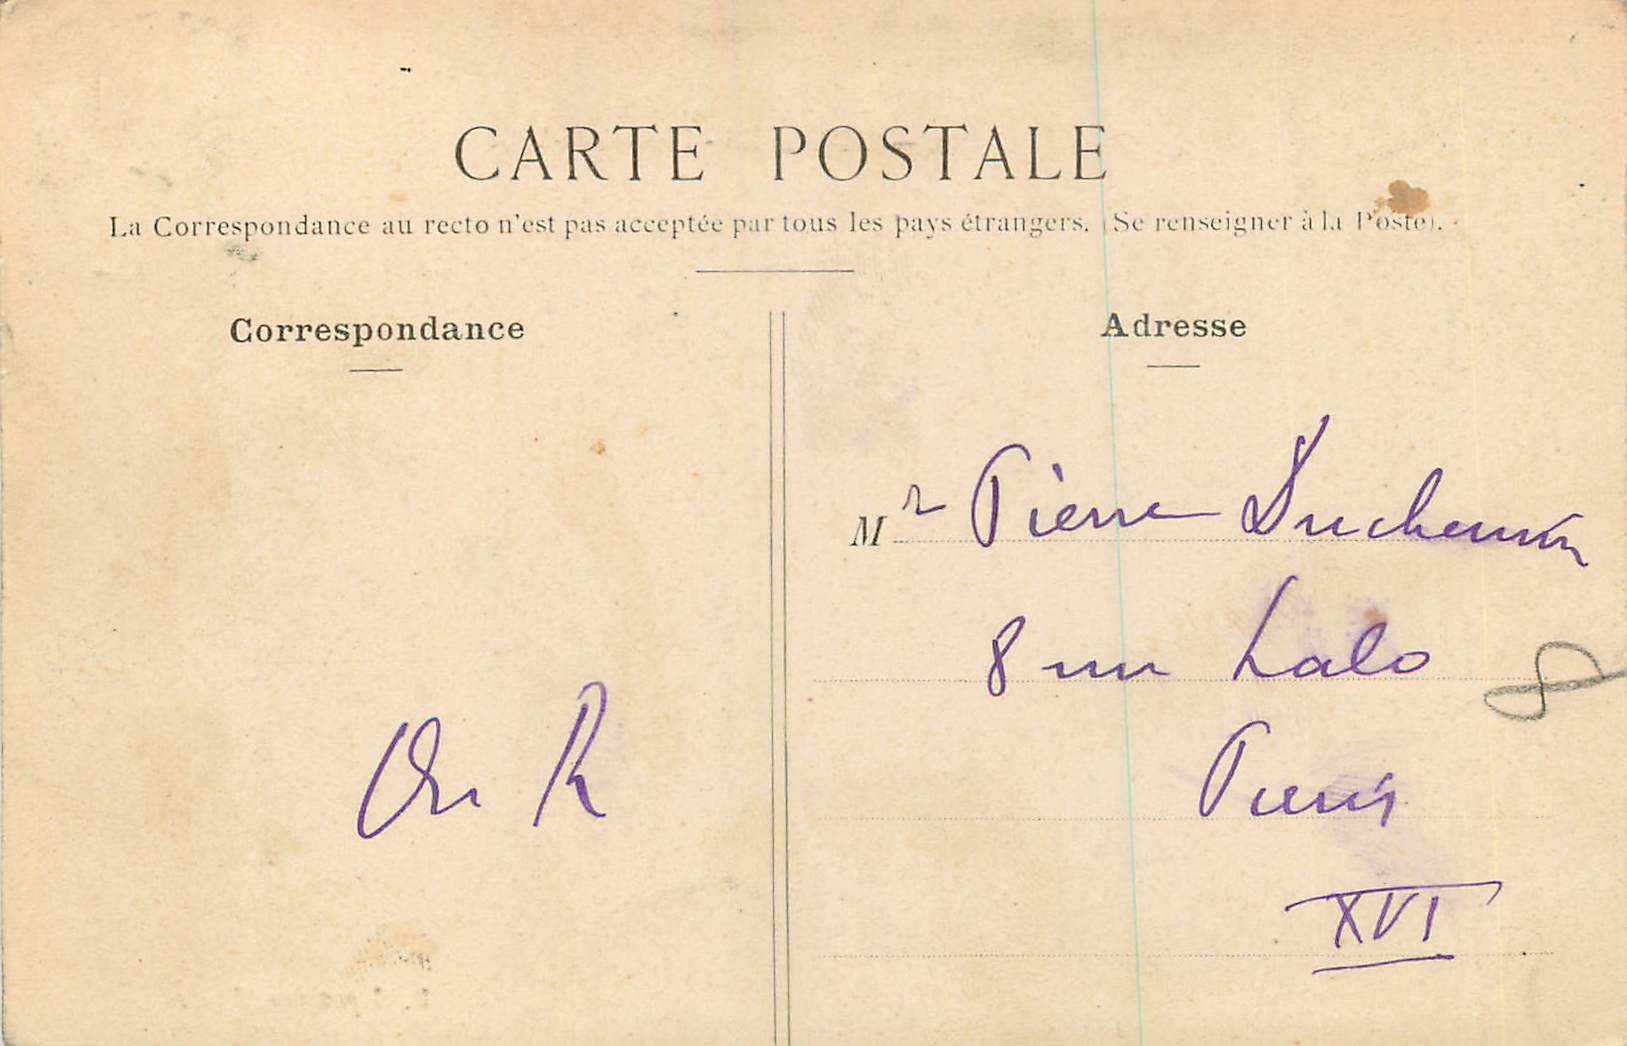 CARTE POSTALE
La Correspondance au recto n'est pas acceptée par tous les pays étrangers. (Se renseigner à la Poste).
Correspondance
Adresse
Mr Pierre Duchemin
8 rue Lalo
Paris
XVI
R
8